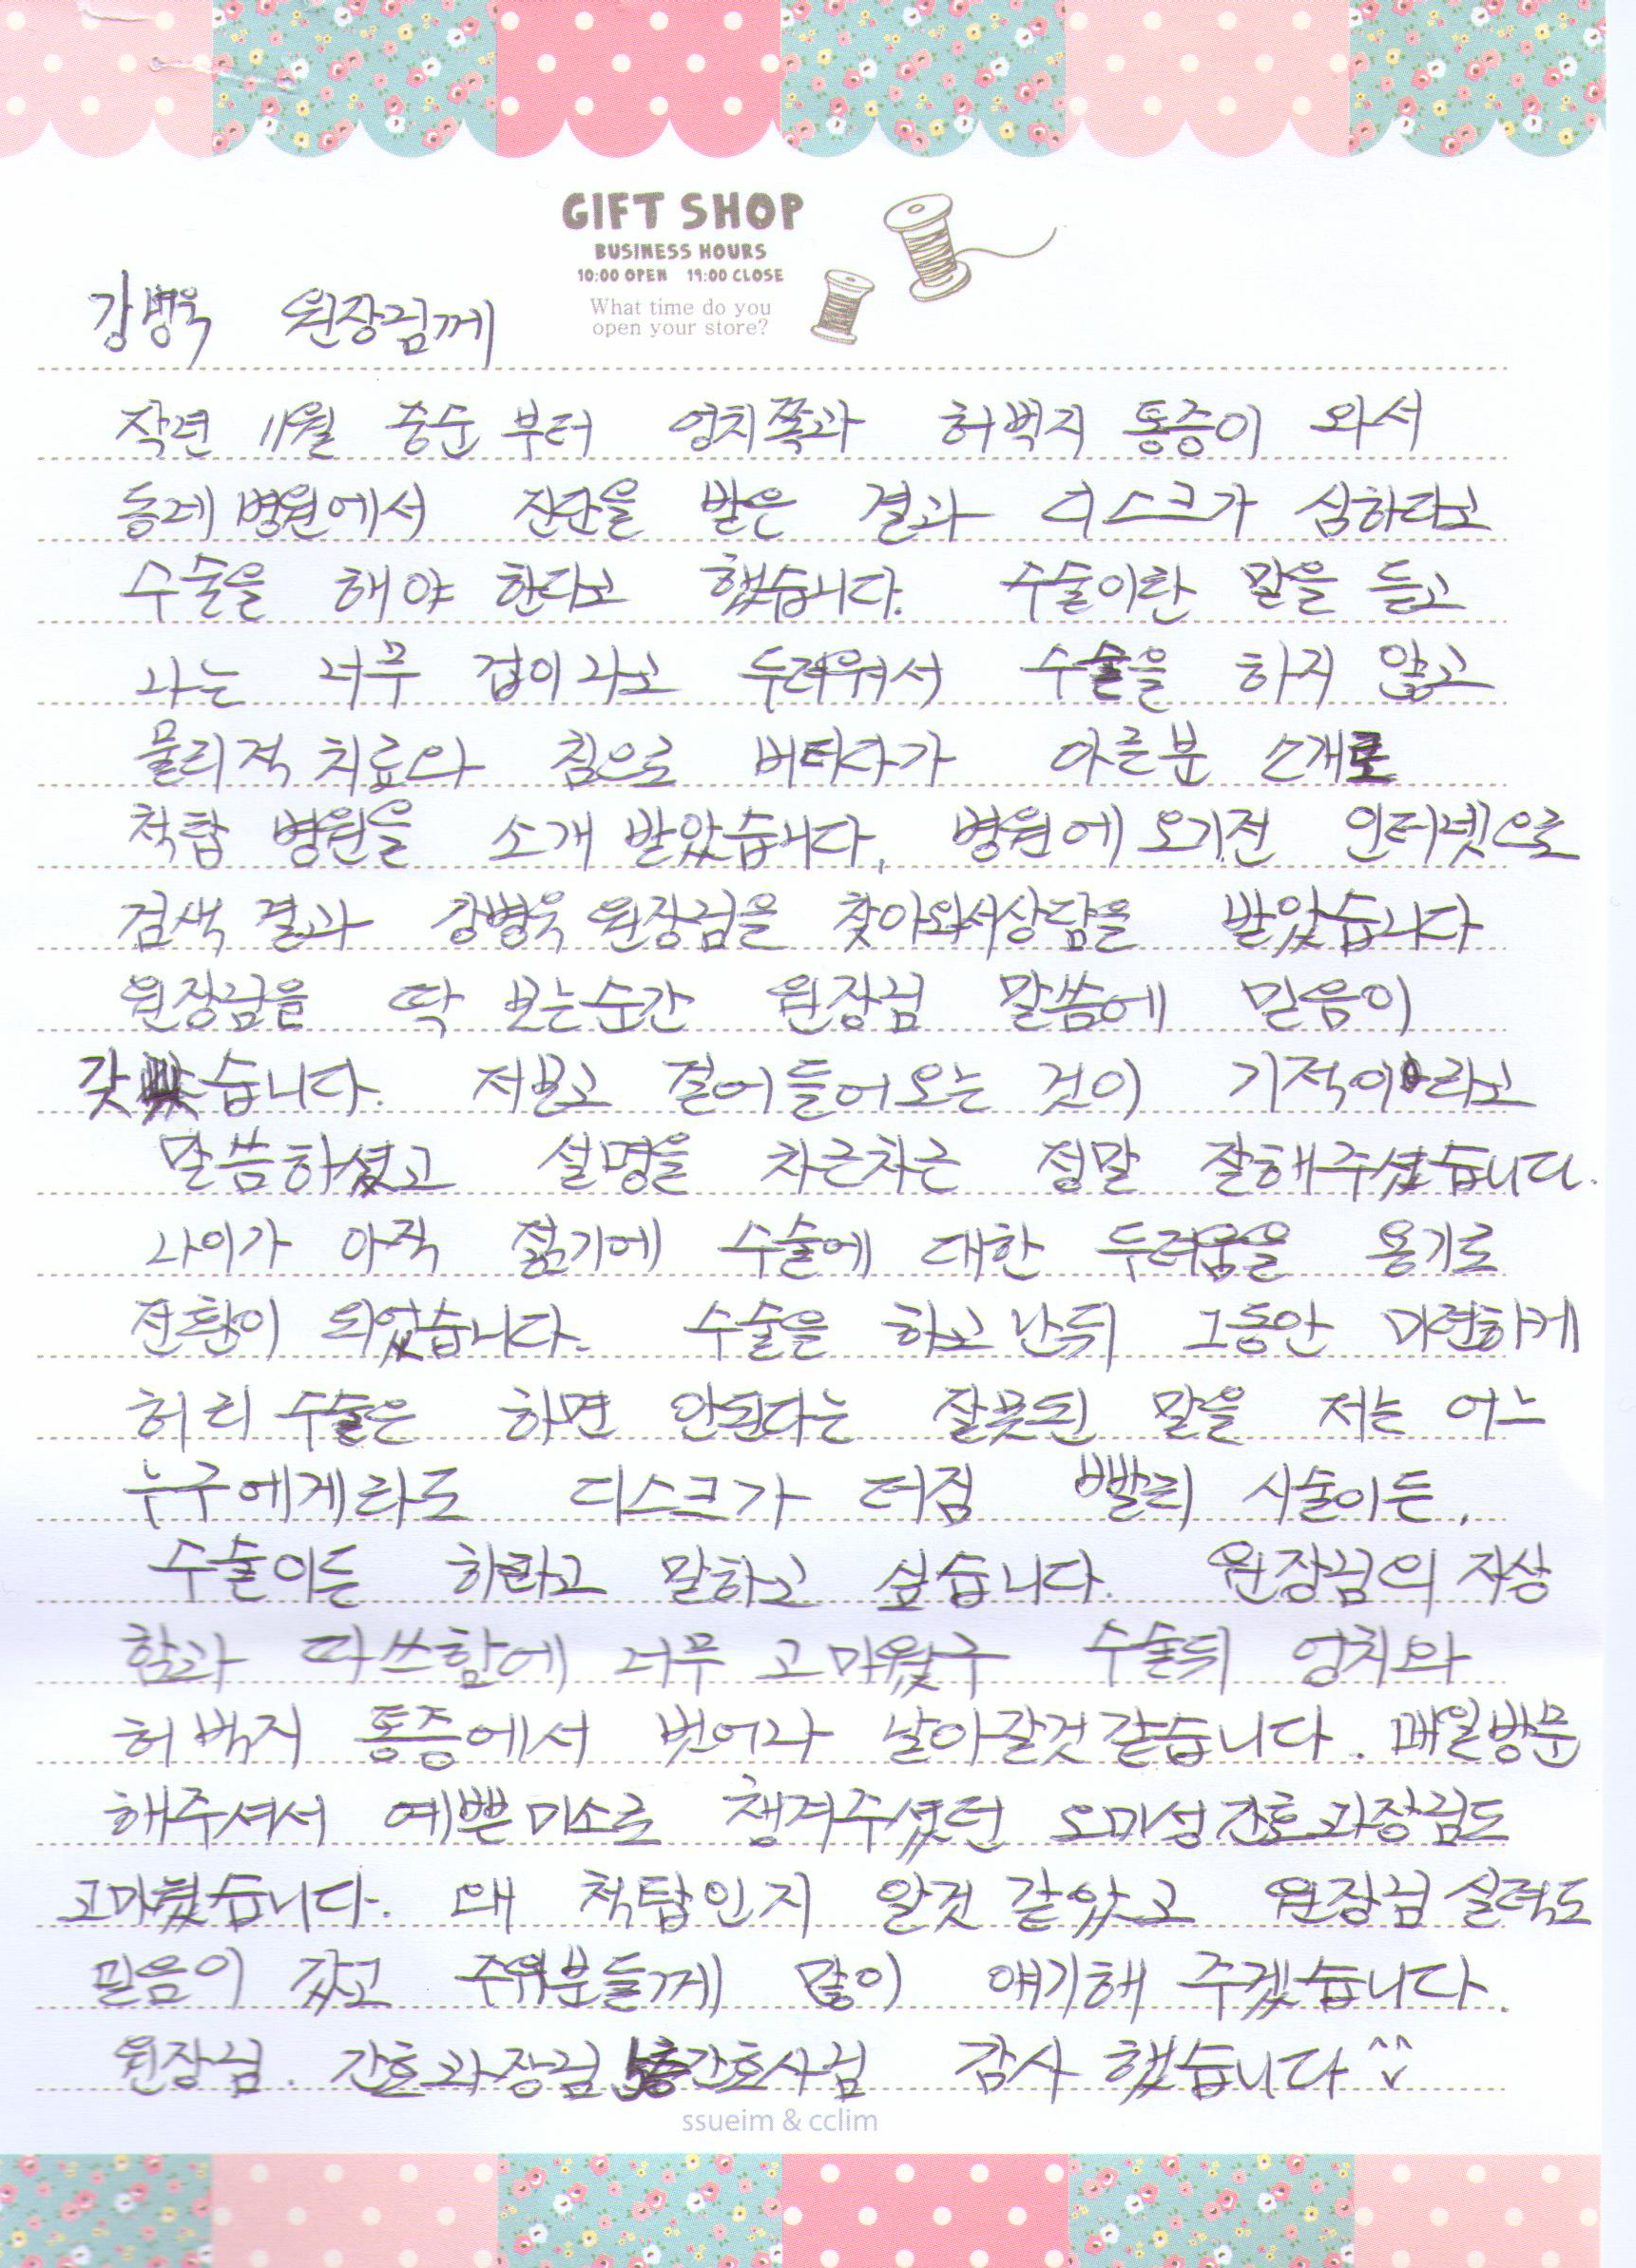 GIFT SHOP
BUSINESS HOURS
10:00 OPEN 19:00 CLOSE
What time do you
open your store?
강병욱 원장님께
작년 11월 중순 부터 엉치쪽과 허벅지 통증이 와서
동네 병원에서 진단을 받은 결과 디스크가 심하다고
수술을 해야 한다고 했습니다. 수술이란 말을 듣고
나는 너무 겁이 나고 두려워서 수술을 하지 않고
물리적 치료와 침으로 버티다가 아른분 소개로
척탑 병원을 소개 받았습니다. 병원에 오기전 인터넷으로
검색 결과 강병욱 원장님을 찾아와서상담을 받았습니다
원장님을 딱 보는순간 원장님 말씀에 믿음이
갖 습니다. 저보고 걸어들어오는 것이 기적이라고
말씀하셨고 설명을 차근차근 정말 잘해주셨습니다.
나이가 아직 젊기에 수술에 대한 두려움을 용기로
전환이 되었습니다. 수술을 하고 난뒤 그동안 미련하게
허리 수술은 하면 안된다는 잘못된 말을 저는 어느
누구에게라도 디스크가 터짐 빨리 시술이든,
수술이든 하라고 말하고 싶습니다. 원장님의 자상
함과 따쓰함에 너무 고마웠구 수술뒤 엉치와
허벅지 통증에서 벗어나 날아갈것같습니다. 매일방문
해주셔서 예쁜미소로 챙겨주셨던 오미성간호과장님도
고마웠습니다. 왜 척탑인지 알것 같았고 원장님 실력도
믿음이 갔고 주위분들께 많이 얘기해 주겠습니다.
원장님. 간호과장님 5층간호사님 감사 했습니다^^
ssueim & cclim